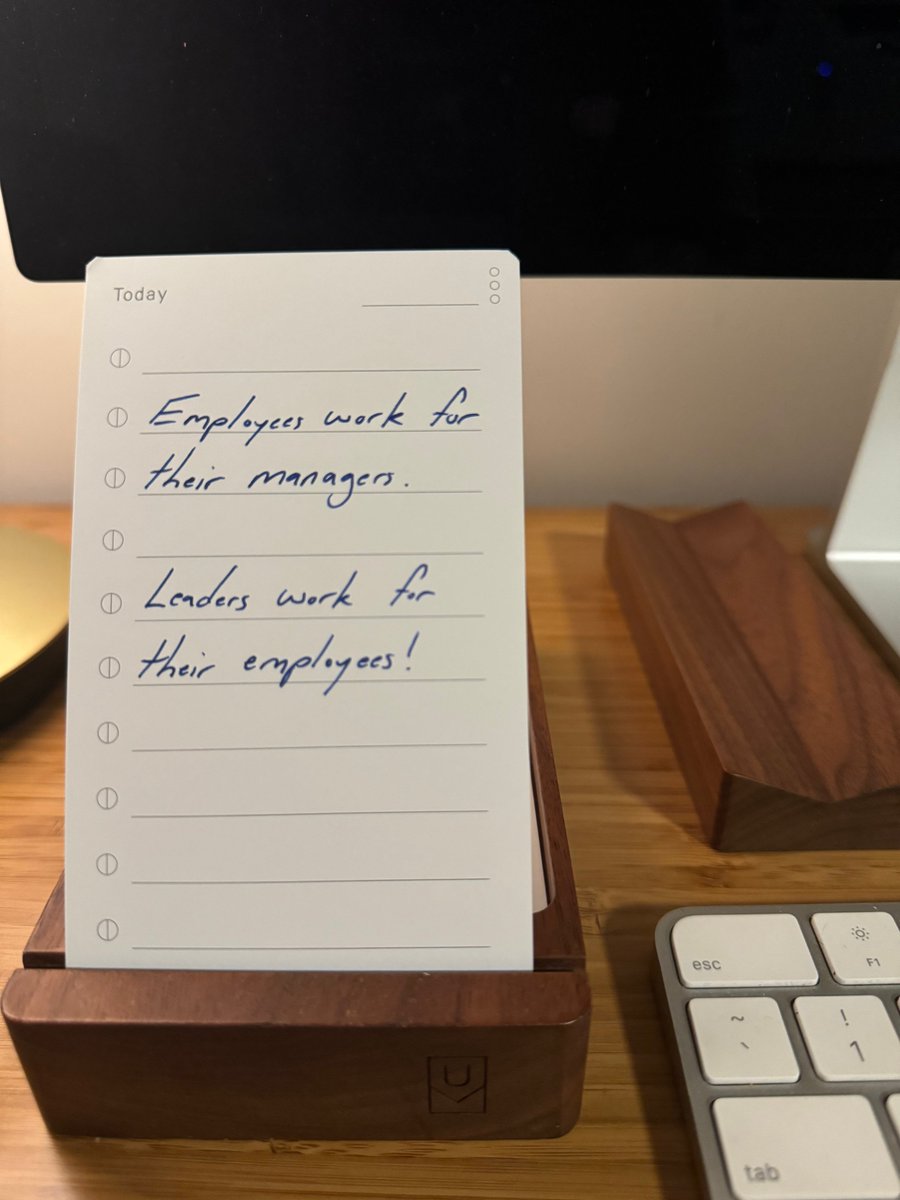 Today
Employees work for
their managers.
Leaders work for
their employees!
U
esc
F1
~
`
!
1
tab